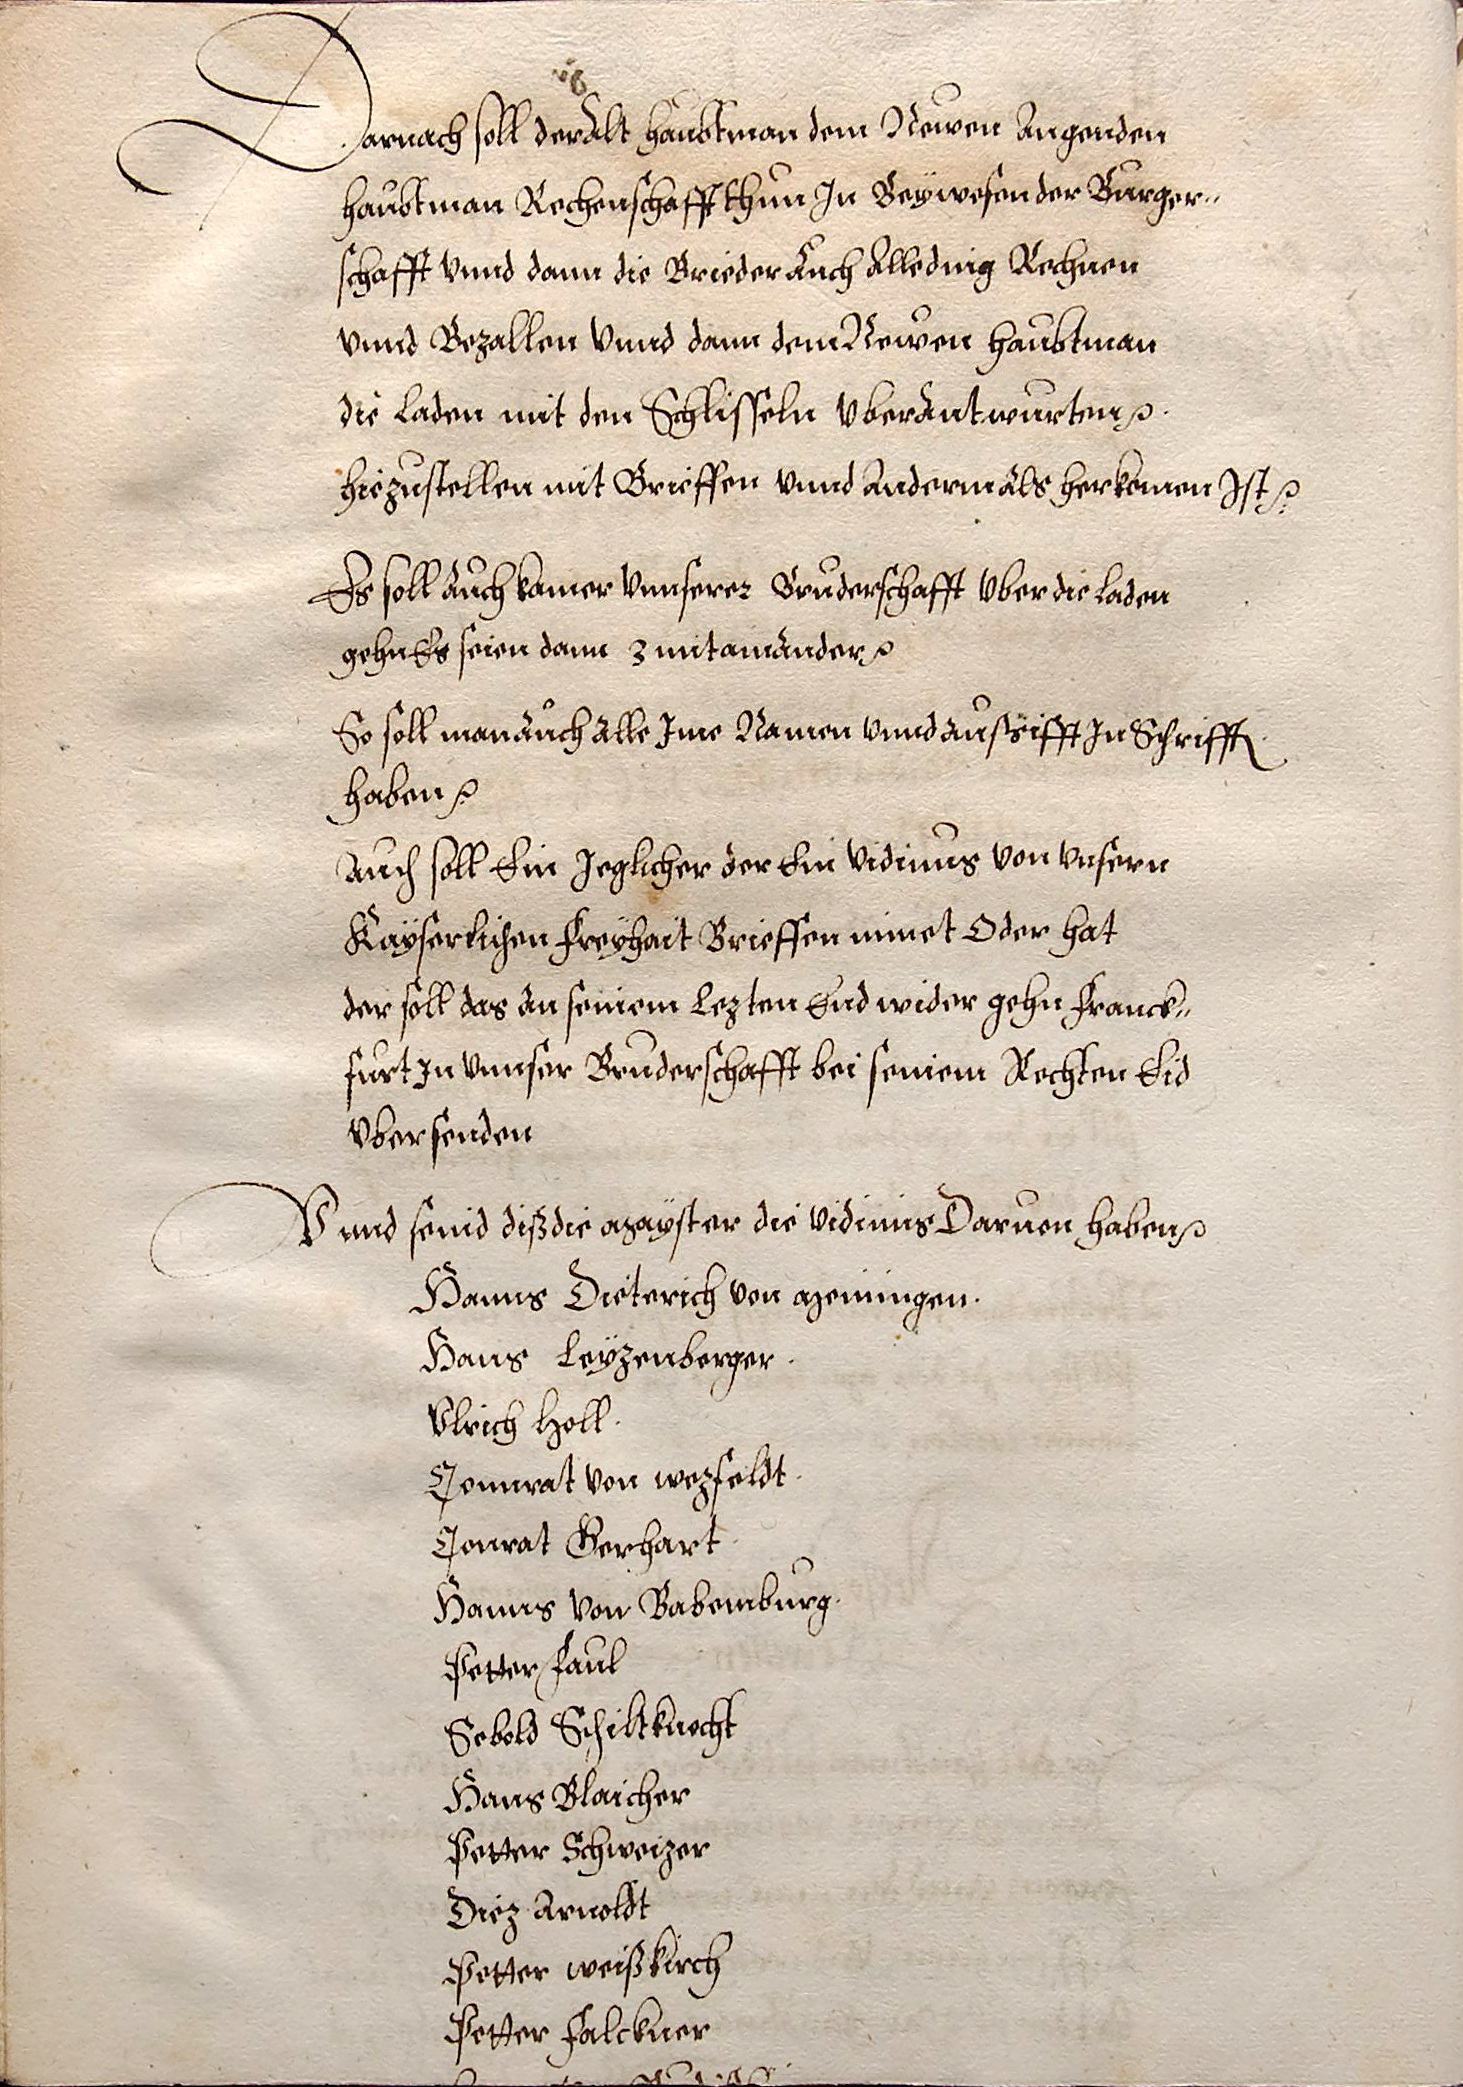 Darnach soll der Alt haubtman dem Newen Angenden
haubtman Rechenschafft thun In Beywesen der Burger„
schafft vnnd dann die Brieder Auch Alle ding Rechnen
vnnd Bezallen vnnd dann dem Newen haubtman
die laden mit den Schlisseln vberantwurten
hie zustellen mit Brieffen vnnd Anderm Als herkomen Ist
Es soll Auch kainer vnnserer Bruderschafft vber die laden
gehn Es seien dann 3 mit ainander
So soll man Auch Alle Ime Namen vnnd In Schrifft
haben
Auch soll Ein Jeglicher der Ein vidimus von vnsern
Kayserlichen freyhait Brieffen nimet Oder hat
der soll das an seinem lezten End wider gehn Franck„
furt In vnnser Bruderschafft bei seinem Rechten Eid
vbersenden
Vnnd seind diß die Mayster die vidimus Daruon haben
Hanns Dieterich von Meiningen.
Hans Leyzenberger.
Vlrich Holl.
Connrat von wezfeldt.
Conrat Gerhart
Hanns von Babemburg.
Petter Faul
Sebold Schiltknecht
Hans Blaicher
Petter Schweizer
Diez Arnoldt
Petter weißkirch
Petter Falckner